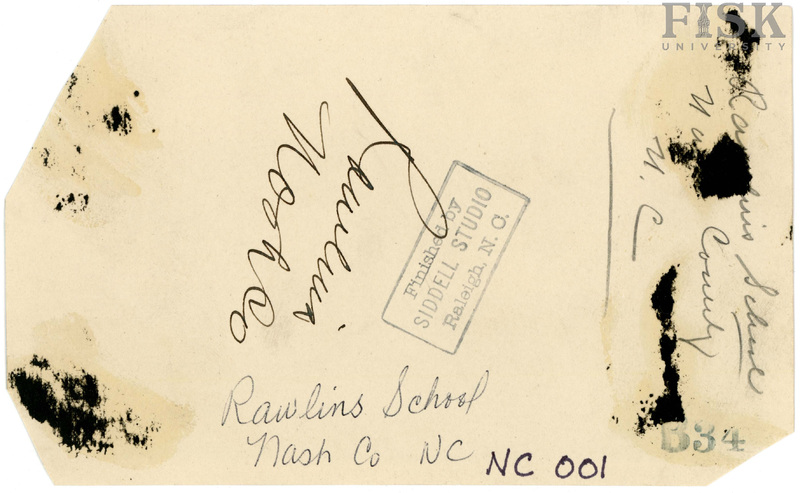 FISK
UNIVERSITY
Rawlins
Nash Co
Finished by
SIDDELL STUDIO
Raleigh, N. C.
School
County
N. C
Rawlins School
Nash Co NC
NC 001
B34